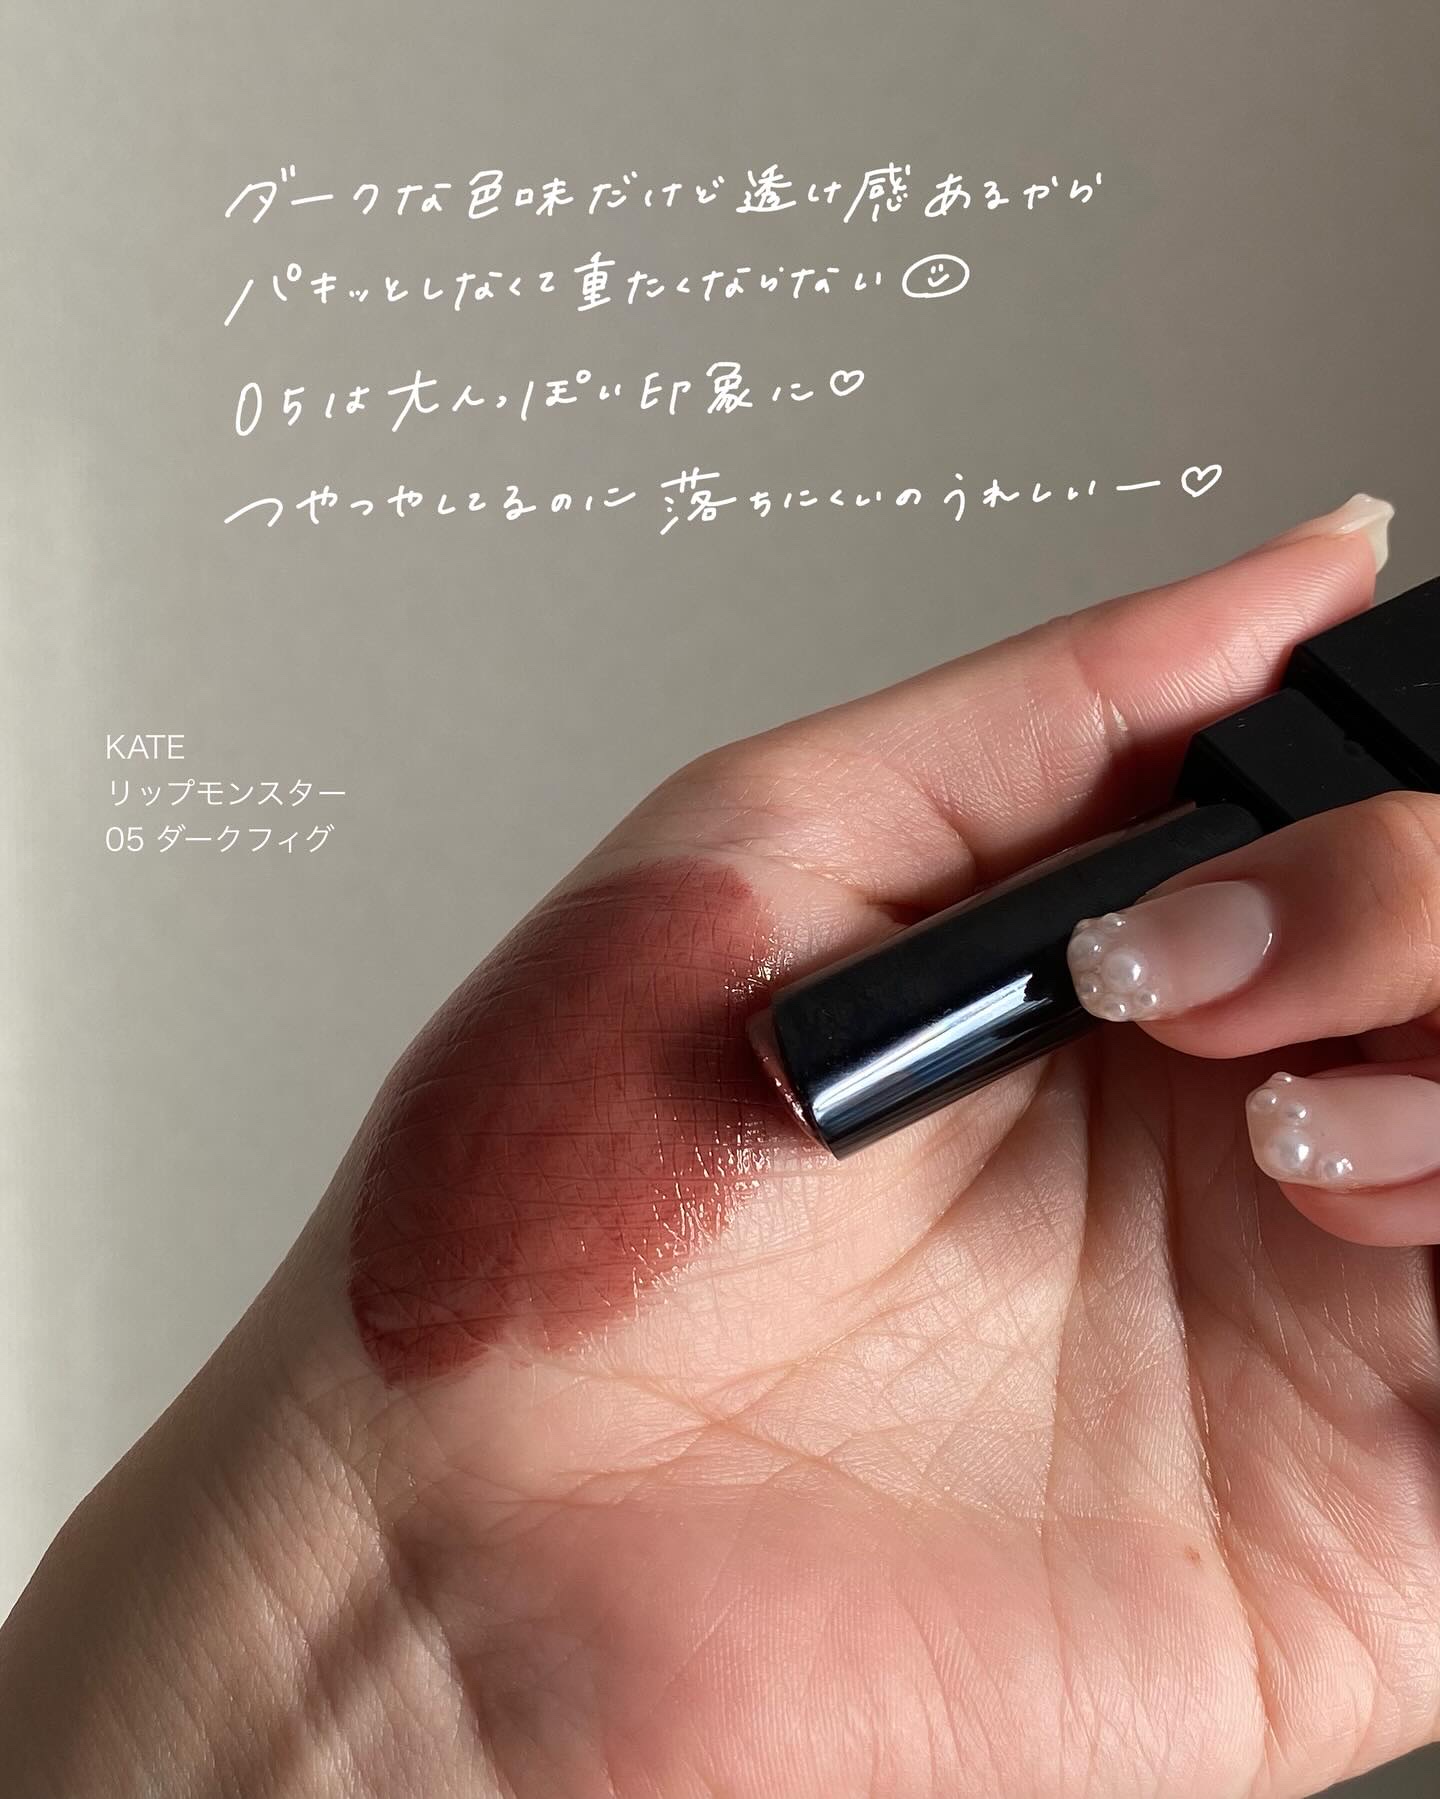 ダークな色味だけど透け感あるから
パキッとしなくて重たくならない
05は大人っぽい印象に♡
つやつやしてるのに落ちにくいのうれしいー♡
KATE
リップモンスター
05 ダークフィグ